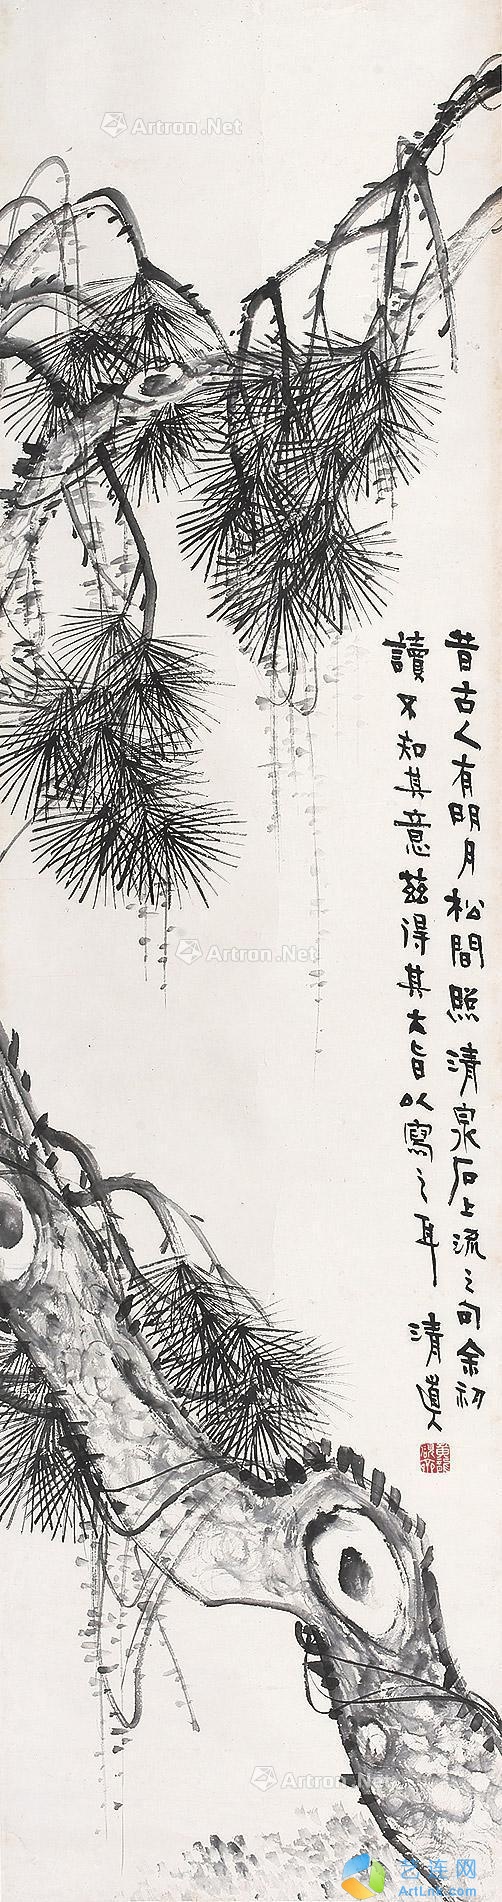 昔古人有明月松間照清泉石上流之句余初
讀不知其意茲得其大旨以寫之耳
清道人
Artron.Net
Artron.Net
Artron.Net
艺连网
ArtLnk.com